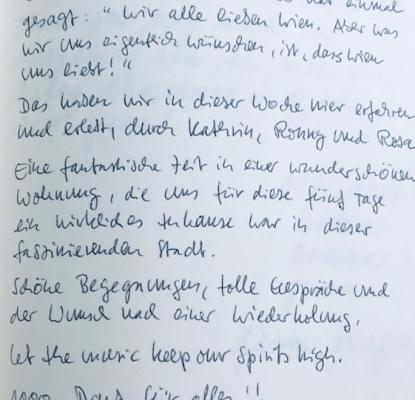 einmal
gesagt: "Wir alle lieben Wien. Aber was
wir uns eigentlich wünschen, ist, dass Wien
uns liebt!"
Das haben wir in dieser Woche hier erfahren
und erlebt, durch Kathrin, Ronny und Rosa
Eine fantastische Zeit in einer wunderschönen
Wohnung, die uns für diese fünf Tage
ein wirkliches Zuhause war in dieser
faszinierenden Stadt.
Schöne Begegnungen, tolle Gespräche und
der Wunsch nach einer Wiederholung,
let the music keep our spirits high.
1000 Dank für alles!!